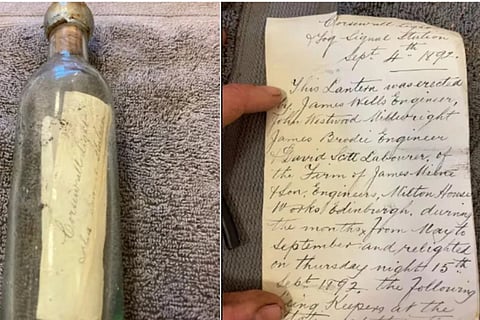 Corsewall
Corsewall
& Fog Signal Station
Sept. 4th 1892.
This Lantern was erected
by James Wells Engineer,
John Westwood Millwright
James Brodie Engineer
& David Scott Labourer, of
the Firm of James Milne
& Son, Engineers, Milton House
Works, Edinburgh, during
the months, from May to
September and relighted
on thursday night 15th
Sept 1892. the following
being Keepers at the